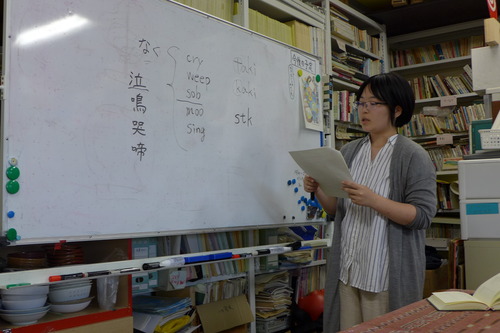 なく
cry
weep
sob
moo
sing
泣
鳴
哭
啼
taki
kaki
stk